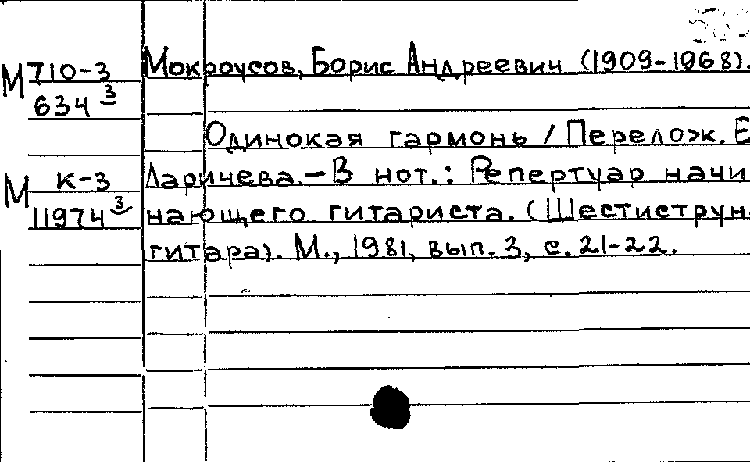 М 710-3 Мокроусов, Борис Андреевич (1909-1968).
634 3
Одинокая гармонь / Перелож. Е
М К-3 Ларичева.-В нот.: Репертуар начи
11974 3 нающего гитариста. (Шестиструн.
гитара). М., 1981, вып. 3, с. 21-22.